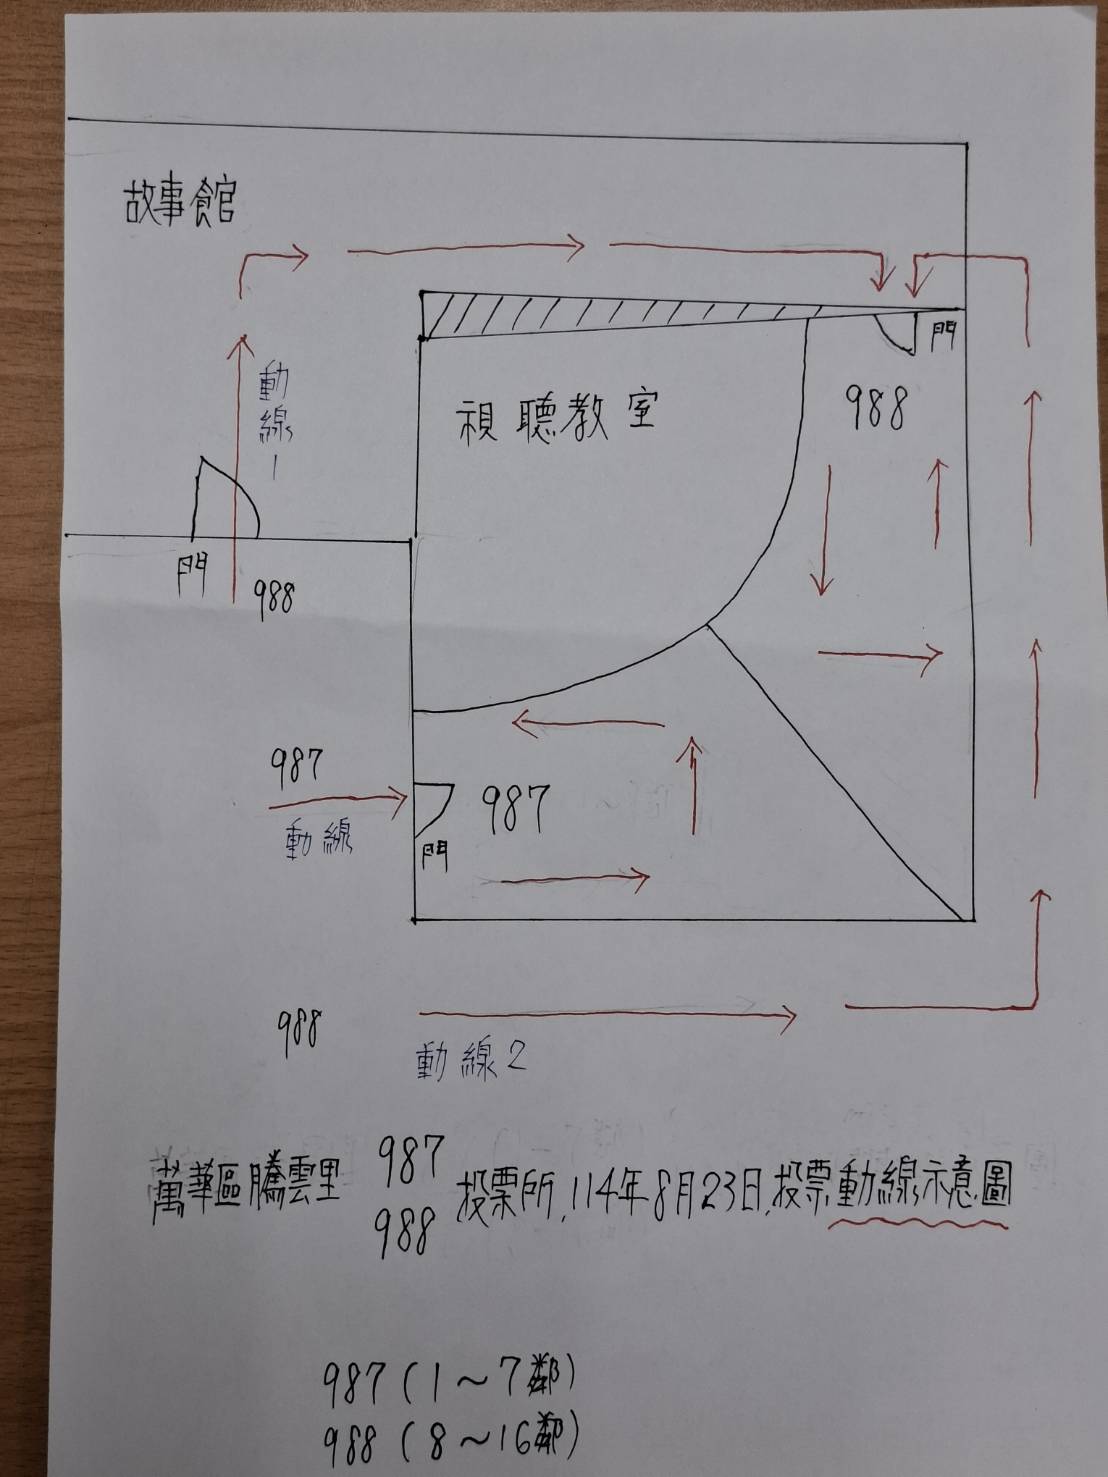 故事館
動線1
門
988
視聽教室
門
988
987
動線
987
門
988
動線2
萬華區騰雲里 987 988 投票所,114年8月23日,投票動線示意圖
987(1~7鄰)
988(8~16鄰)